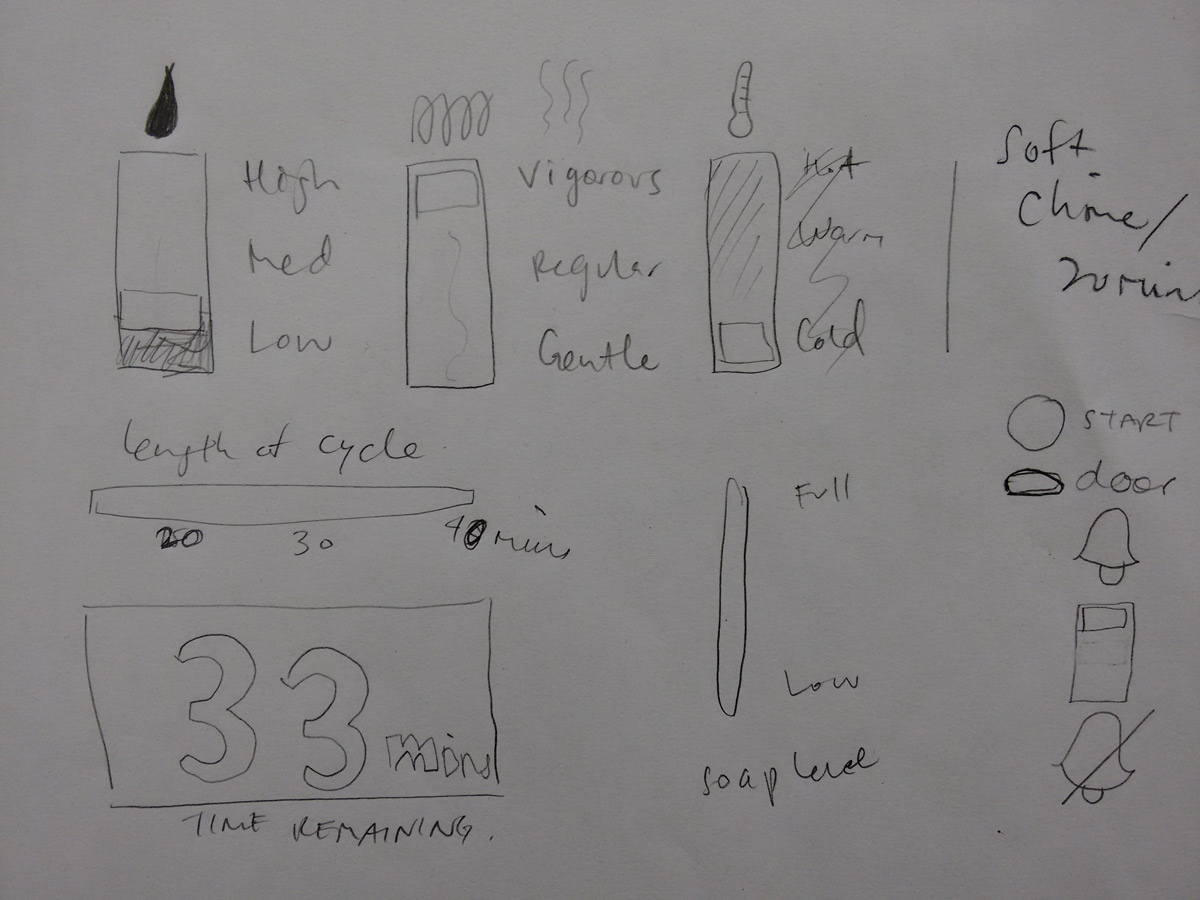 High
Med
Low
Vigorous
Regular
Gentle
Hot
Warm
Cold
Soft
Chime/
20 min
length of cycle
20 30 40 mins
33 mins
TIME REMAINING.
Full
Low
soap level
START
door